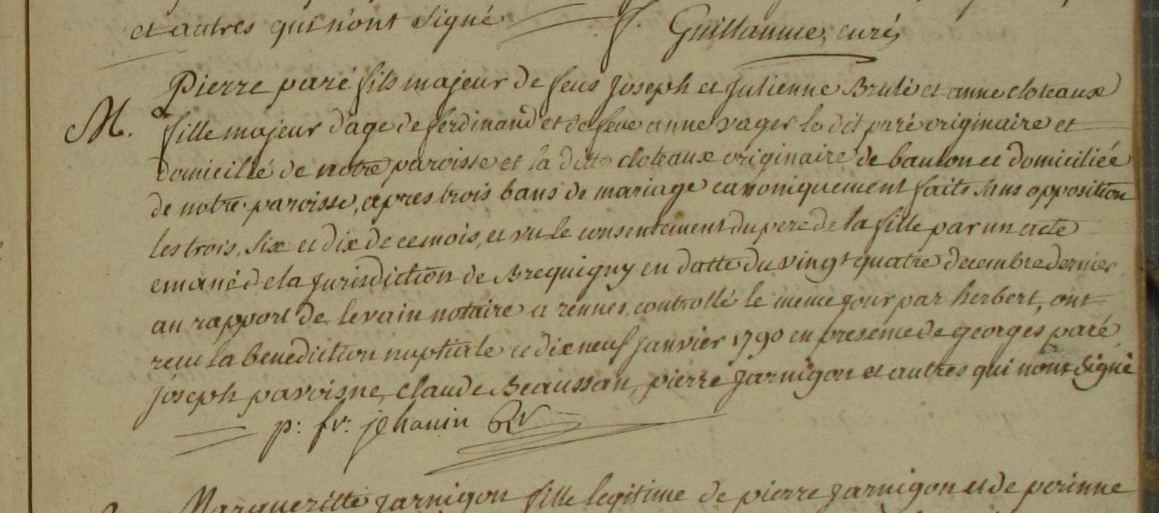 et autres qui n'ont signé J. Guillaume, curé
Pierre paré fils majeur de feus Joseph et Julienne Brulé et anne cloteaux
M. fille majeur d'age de ferdinand et de feue anne vager le dit paré originaire et
domicillié de notre paroisse et la ditte cloteaux originaire de baulon et domiciliée
de notre paroisse, apres trois bans de mariage canoniquement faits sans opposition
les trois, six et dix de ce mois, et vu le consentement du pere de la fille par un acte
emané de la Jurisdiction de Brequigny en datte du vingt quatre decembre dernier
au rapport de levain notaire a rennes, controllé le meme jour par herbert, ont
recu la benediction nuptiale ce dix neuf janvier 1790 en presence de georges paré,
joseph paroisne, claude Beaussan, pierre Jarnigon et autres qui n'ont signé
p: fr. jehanin
Margueritte Jarnigon fille legitime de pierre Jarnigon et de perinne